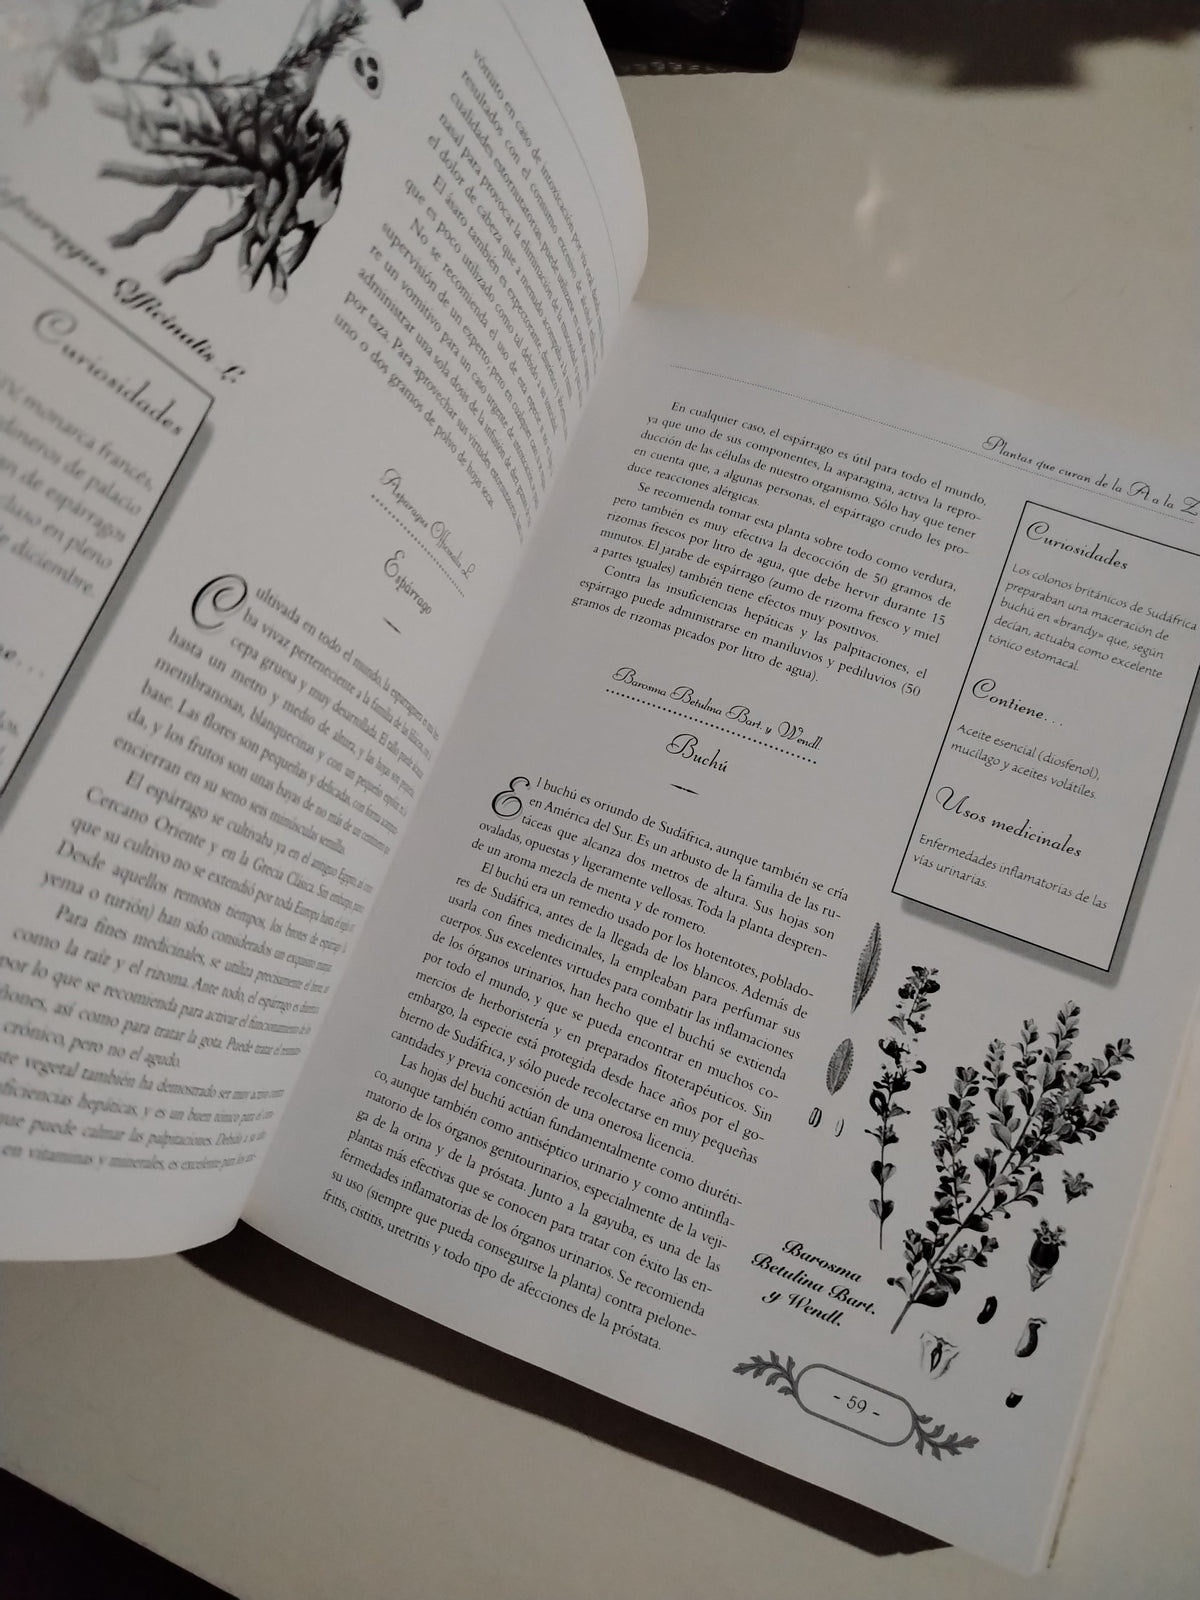 Asparagus Officinalis L.
Curiosidades
monarca francés,
de palacio
de espárragos
en pleno
diciembre
vómito en caso de intoxicación por vía oral, desde
resultados con el consumo excesivo de alcohol
cualidades estornutatorias, puede utilizarse en caso de
nasal para provocar la eliminación de la mucosidad
el dolor de cabeza que, a menudo acompaña a la
El ásaro también es expectorante, diurético y
que es poco utilizado como tal debido a su toxicidad.
No se recomienda el uso de esta especie
supervisión de un experto, pero en cualquier caso
re un vomitivo para un caso urgente de intoxicación,
administrar una sola dosis de la infusión de
por taza. Para aprovechar sus virtudes estornutatorias,
uno o dos gramos de polvo de hojas seca.
Asparagus Officinalis L.
Espárrago
Cultivada en todo el mundo, la esparraguera es una hier-
ba vivaz perteneciente a la familia de las liliáceas, con
cepa gruesa y muy desarrollada. El tallo puede alcanzar
hasta un metro y medio de altura, y las hojas son
membranosas, blanquecinas y con un pequeño espolón en la
base. Las flores son pequeñas y delicadas, con forma acampa-
da, y los frutos son unas bayas de no más de un centímetro que
encierran en su seno seis minúsculas semillas.
El espárrago se cultivaba ya en el antiguo Egipto, en
Cercano Oriente y en la Grecia Clásica. Sin embargo, parece
que su cultivo no se extendió por toda Europa hasta el siglo
Desde aquellos remotos tiempos, los brotes de espárrago (la
yema o turión) han sido considerados un exquisito manjar.
Para fines medicinales, se utiliza precisamente el brote, así
como la raíz y el rizoma. Ante todo, el espárrago es diurético,
por lo que se recomienda para activar el funcionamiento de los
riñones, así como para tratar la gota. Puede tratar el reumatismo
crónico, pero no el agudo.
este vegetal también ha demostrado ser muy activo contra
insuficiencias hepáticas, y es un buen tónico para el cora-
que puede calmar las palpitaciones. Debido a su alto
en vitaminas y minerales, es excelente para los
Plantas que curan de la A a la Z
En cualquier caso, el espárrago es útil para todo el mundo,
ya que uno de sus componentes, la asparagina, activa la repro-
ducción de las células de nuestro organismo. Sólo hay que tener
en cuenta que, a algunas personas, el espárrago crudo les pro-
duce reacciones alérgicas.
Se recomienda tomar esta planta sobre todo como verdura,
pero también es muy efectiva la decocción de 50 gramos de
rizomas frescos por litro de agua, que debe hervir durante 15
minutos. El jarabe de espárrago (zumo de rizoma fresco y miel
a partes iguales) también tiene efectos muy positivos.
Contra las insuficiencias hepáticas y las palpitaciones, el
espárrago puede administrarse en maniluvios y pediluvios (50
gramos de rizomas picados por litro de agua).
Barosma Betulina Bart. y Wendl.
Buchú
El buchú es oriundo de Sudáfrica, aunque también se cría
en América del Sur. Es un arbusto de la familia de las ru-
táceas que alcanza dos metros de altura. Sus hojas son
ovaladas, opuestas y ligeramente vellosas. Toda la planta despren-
de un aroma mezcla de menta y de romero.
El buchú era un remedio usado por los hotentotes, poblado-
res de Sudáfrica, antes de la llegada de los blancos. Además de
usarla con fines medicinales, la empleaban para perfumar sus
cuerpos. Sus excelentes virtudes para combatir las inflamaciones
de los órganos urinarios, han hecho que el buchú se extienda
por todo el mundo, y que se pueda encontrar en muchos co-
mercios de herboristería y en preparados fitoterapéuticos. Sin
embargo, la especie está protegida desde hace años por el go-
bierno de Sudáfrica, y sólo puede recolectarse en muy pequeñas
cantidades y previa concesión de una onerosa licencia.
Las hojas del buchú actúan fundamentalmente como diuréti-
co, aunque también como antiséptico urinario y como antiinfla-
matorio de los órganos genitourinarios, especialmente de la veji-
ga de la orina y de la próstata. Junto a la gayuba, es una de las
plantas más efectivas que se conocen para tratar con éxito las en-
fermedades inflamatorias de los órganos urinarios. Se recomienda
su uso (siempre que pueda conseguirse la planta) contra pielone-
fritis, cistitis, uretritis y todo tipo de afecciones de la próstata.
Curiosidades
Los colonos británicos de Sudáfrica
preparaban una maceración de
buchú en «brandy» que, según
decían, actuaba como excelente
tónico estomacal.
Contiene...
Aceite esencial (diosfenol),
mucílago y aceites volátiles.
Usos medicinales
Enfermedades inflamatorias de las
vías urinarias.
Barosma
Betulina Bart.
y Wendl.
- 59 -